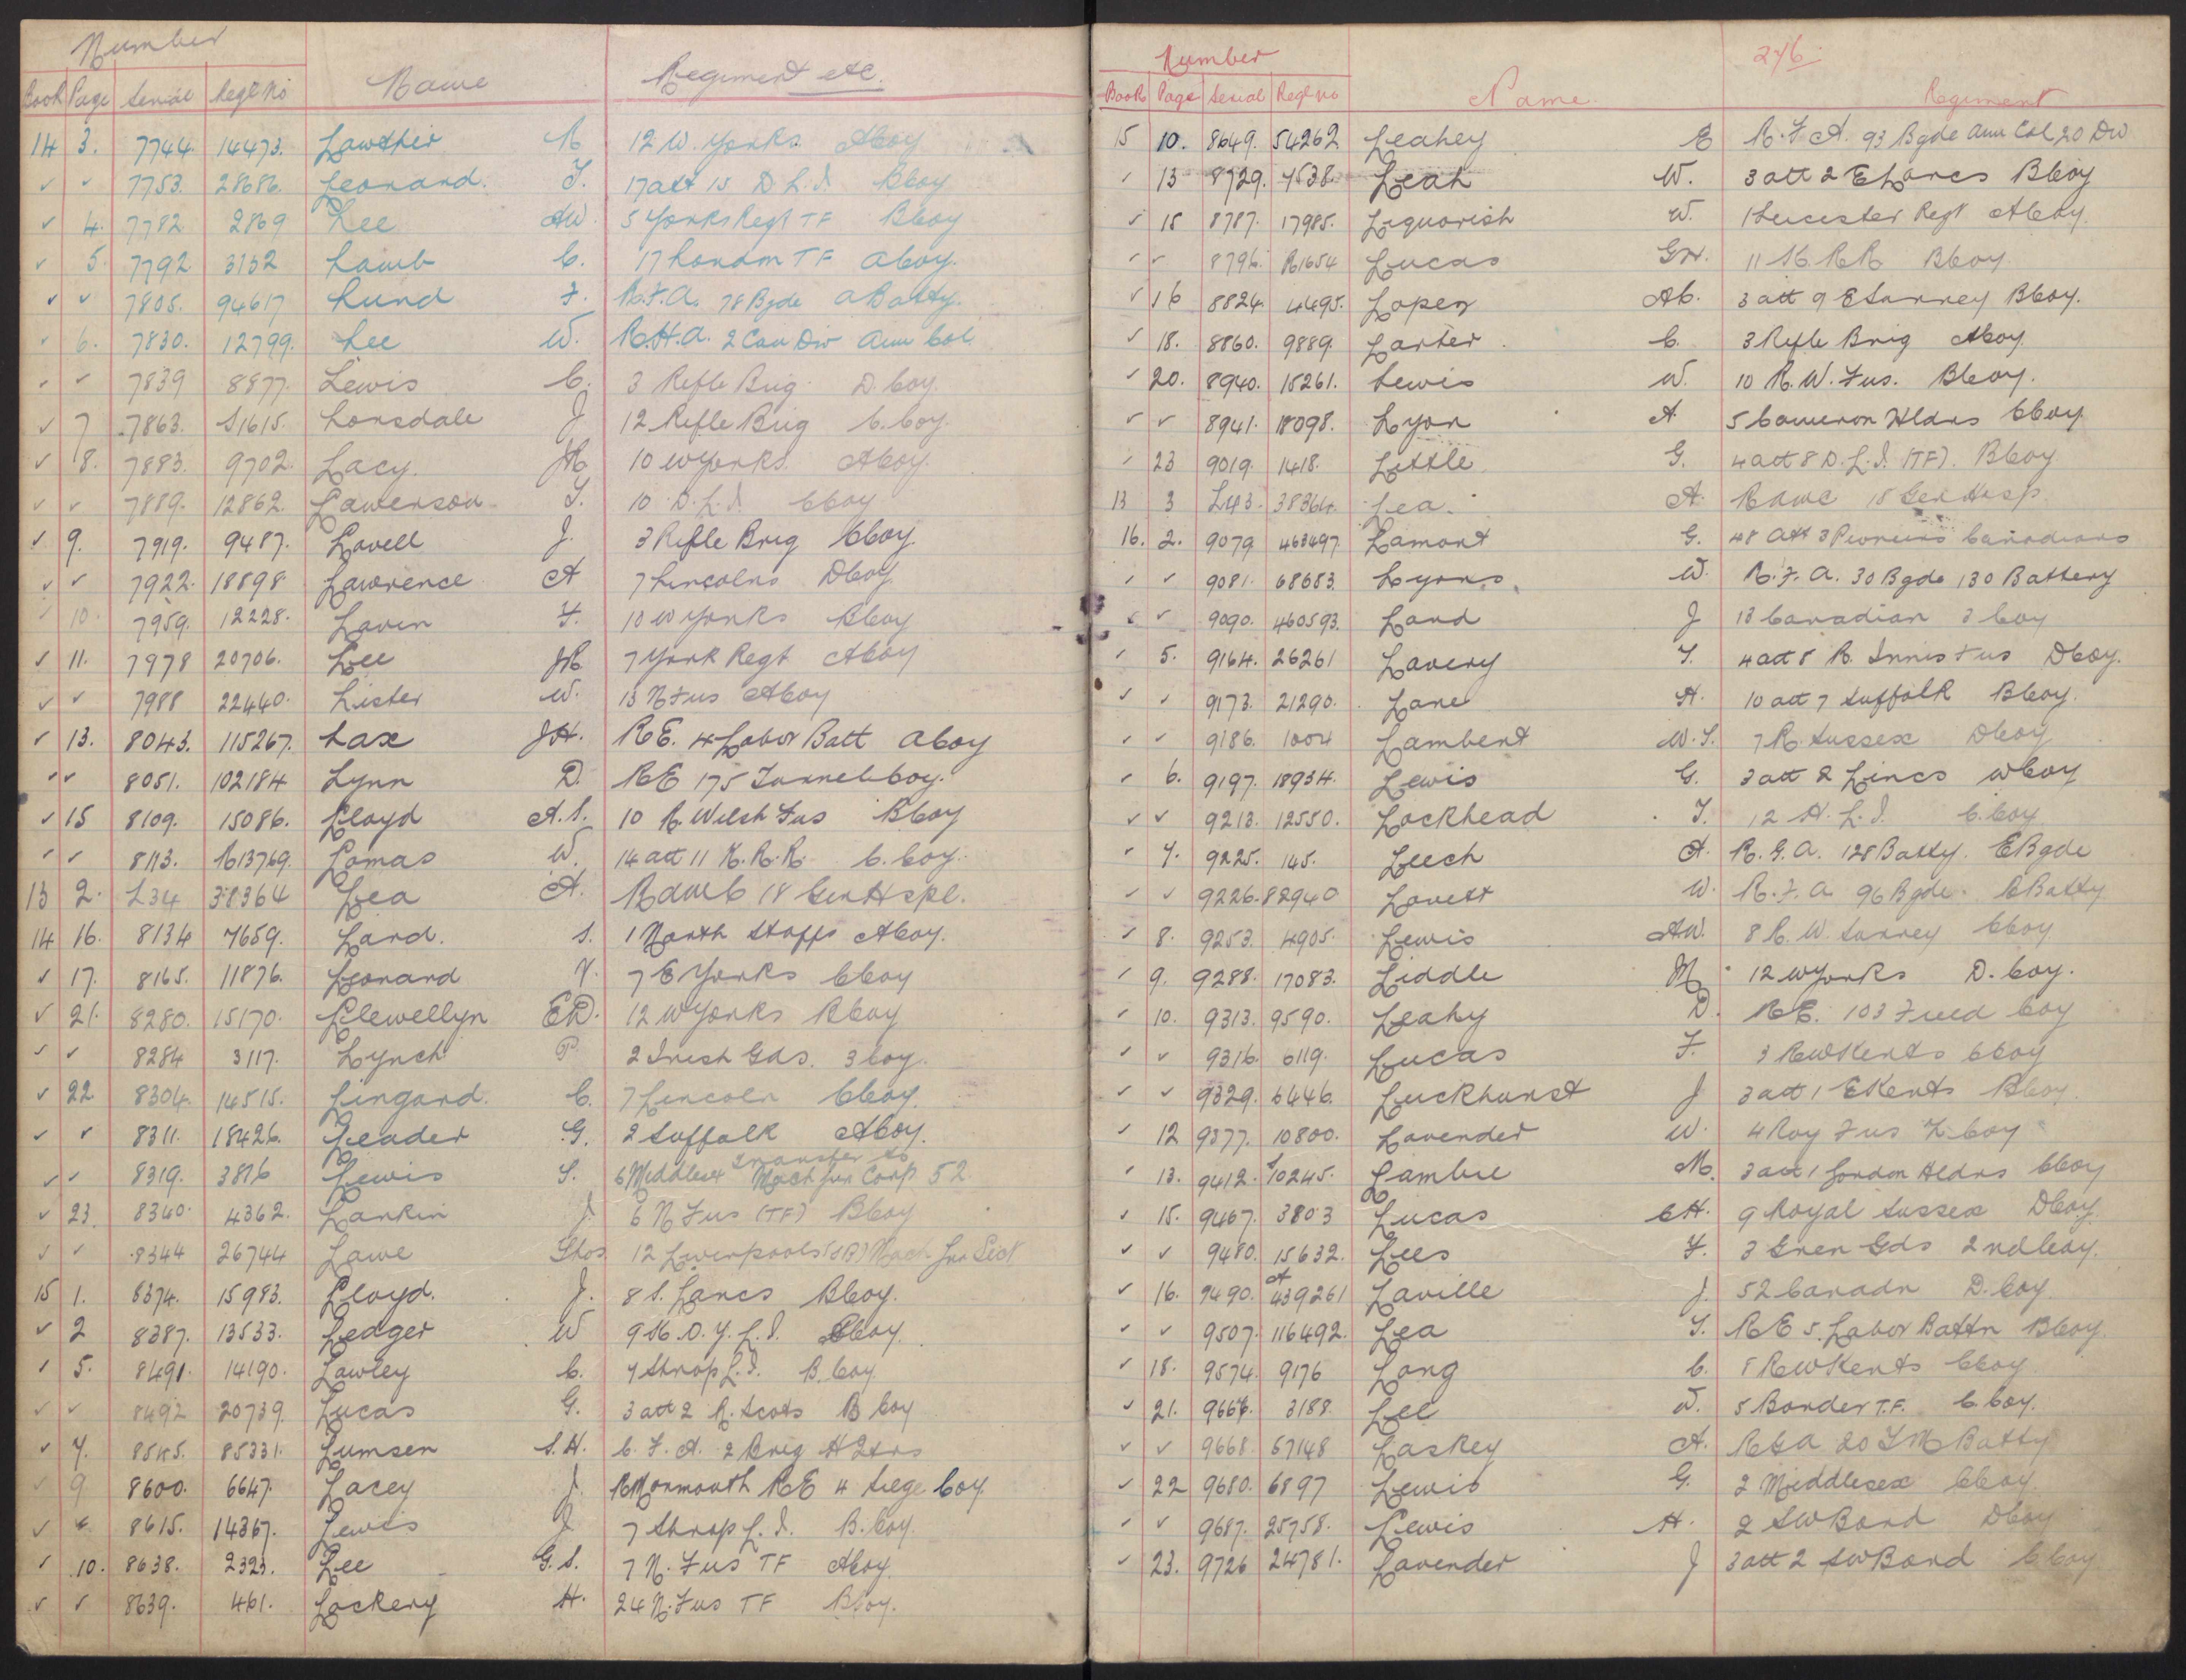 Number
Book Page Serial Regtl No Name Regiment etc.
14 3. 7744. 14473. Lowther R 12 W. Yorks. A Coy
✓ ✓ 7753. 28686. Leonard. T. 17 att 15 D.L.I. B Coy
✓ 4. 7782 2869 Lee AW. 5 Yorks Regt TF B Coy
✓ 5. 7792 3132 Lamb C. 17 London TF A Coy.
✓ ✓ 7805. 94617 Lund F. R.F.A. 78 Bgde A Batty.
✓ 6. 7830. 12799. Lee W. R.H.A. 2 Cav Div Am Col
✓ ✓ 7839 8877. Lewis C. 3 Rifle Brig. D. Coy.
✓ 7 7863. S1615. Lonsdale J 12 Rifle Brig C. Coy.
✓ 8. 7883. 9702. Lacy. JR 10 W Yorks. A Coy.
✓ ✓ 7889. 12862. Lawerson T. 10 D.L.I. C Coy
✓ 9. 7919. 9487. Lovell J. 3 Rifle Brig C Coy.
✓ ✓ 7922. 18898 Lawrence A 7 Lincolns D Coy
✓ 10. 7959. 12228. Lavin F. 10 W Yorks B Coy
✓ 11. 7978 20706. Lee JR 7 York Regt A Coy
✓ ✓ 7988 22440. Lister W. 13 N Fus A Coy
✓ 13. 8043. 115267. Lax JH. RE. 4 Labor Batt A Coy
✓ ✓ 8051. 102184 Lynn D. RE 175 Tunnel. Coy.
✓ 15 8109. 15086. Lloyd A.S. 10 R. Welch Fus B Coy
✓ ✓ 8113. R13769. Lomas W. 14 att 11 K.R.R. C. Coy.
13 2. L34 38364 Lea A. RAMC 18 Gen Hspl.
14 16. 8134 7659. Lard. S. 1 North Staffs A Coy.
✓ 17. 8165. 11876. Leonard V. 7 E Yorks C Coy
✓ 21. 8280. 15170. Llewellyn ED. 12 W Yorks B Coy
✓ ✓ 8284 3117. Lynch P. 2 Irish Gds. 3 Coy.
✓ 22 8304. 14515. Lingard. C. 7 Lincoln C Coy.
✓ ✓ 8311. 18426. Leader G. 2 Suffolk A Coy.
✓ ✓ 8319. 3876 Lewis S. 6 Middlesex Transfer to Mach Gun Corp 52
✓ 23. 8340. 4362. Larkin J. 6 N Fus (TF) B Coy
✓ ✓ 8344 26744 Lawe Thos 12 Liverpools (SB) Mach Gun Sect
15 1. 8374. 15983. Lloyd. J. 8 S. Lancs B Coy.
✓ 2 8387. 13533. Ledger W 9 K.O.Y.L.I. Coy.
✓ 5. 8491. 14190. Lawley C. 7 Shrop L.I. B. Coy.
✓ ✓ 8492 20739. Lucas G. 3 att 2 R. Scots B Coy
✓ 7. 8545. 85331. Lumsen S.H. C.F.A. 2 Brig H Qtrs
✓ 9 8600. 6647. Lacey J. R Monmouth RE 4 Siege Coy.
✓ ✓ 8615. 14367. Lewis J. 7 Shrop L.I. B. Coy.
✓ 10. 8638. 2323. Lee G.S. 7 N. Fus TF A Coy.
✓ ✓ 8639. 461. Lockery H. 24 N. Fus TF B Coy.
246.
Number
Book Page Serial Regtl No Name. Regiment
15 10. 8649. 54262 Leahey E R.F.A. 93 Bgde Am Col 20 Div
✓ 13 8729. 4538. Leah W. 3 att 2 E Lancs B Coy
✓ 15 8787. 17985. Liquorish W. 1 Leicester Regt A Coy.
✓ ✓ 8796. R1654 Lucas GH. 11 K.R.R. B Coy
✓ 16 8824. 4495. Loper AC. 3 att 9 E Surrey B Coy.
✓ 18. 8860. 9889. Larter C. 3 Rifle Brig A Coy
✓ 20. 8940. 15261. Lewis W. 10 R.W. Fus. B Coy.
✓ ✓ 8941. 18098. Lyon A 5 Cameron Hldrs C Coy
✓ 23 9019. 1418. Little G. 4 att 8 D.L.I. (TF). B Coy
13 3 L43. 38364. Lea. A. RAMC 18 Gen Hosp.
16. 2. 9079 463497 Lamont G. 48 Att 3 Pioneers Canadians
✓ ✓ 9081. 68683. Lyons. W. R.F.A. 30 Bgde 130 Battery
✓ ✓ 9090. 460593. Land J 13 Canadian 3 Coy
✓ 5. 9164. 26261 Lavery T. 4 att 8 R. Innis Fus D Coy.
✓ ✓ 9173. 21290. Lane A. 10 att 7 Suffolk B Coy.
✓ ✓ 9186. 1004 Lambert W.T. 7 R. Sussex D Coy
✓ 6. 9197. 18934. Lewis G. 3 att 2 Lincs W Coy
✓ ✓ 9213. 12550. Lockhead T. 12 H.L.I. C. Coy
✓ 7. 9225. 145. Leech A. R.G.A. 128 Batty. E Bgde
✓ ✓ 9226. 82940 Lovett W. R.F.A. 96 Bgde. C Batty
✓ 8. 9253. 4905. Lewis AW. 8 R.W. Surrey C Coy
✓ 9. 9288. 17083. Liddle M 12 W Yorks D. Coy.
✓ 10. 9313. 9590. Leahy D. RE. 103 Field Coy
✓ ✓ 9316. 6119. Lucas F. 3 R W Kents C Coy
✓ ✓ 9329. 6446. Luckhurst J 3 att 1 E Kents B Coy
✓ 12 9377. 10800. Lavender W. 4 Roy Fus Z Coy
✓ 13. 9412. S10245. Lambie M. 3 att 1 Gordon Hldrs C Coy
✓ 15. 9467. 3803 Lucas CH. 9 Royal Sussex D Coy.
✓ ✓ 9480. 15632. Lees F. 3 Gren Gds 2nd Coy.
✓ 16. 9490. A 439261 Laville J. 52 Canadn D. Coy.
✓ ✓ 9507. 116492. Lea T. RE 5. Labor Battn B Coy
✓ 18. 9574. 9176 Long C. 8 R W Kents C Coy
✓ 21. 9666. 3188. Lee W. 5 Border T.F. C. Coy.
✓ ✓ 9668. 67148 Laskey A. RGA 20 TM Batty
✓ 22 9680. 6897 Lewis G. 2 Middlesex C Coy.
✓ ✓ 9687. 25758. Lewis H. 2 SW Bord D Coy
✓ 23. 9726 24781. Lavender J 3 att 2 SW Bord C Coy